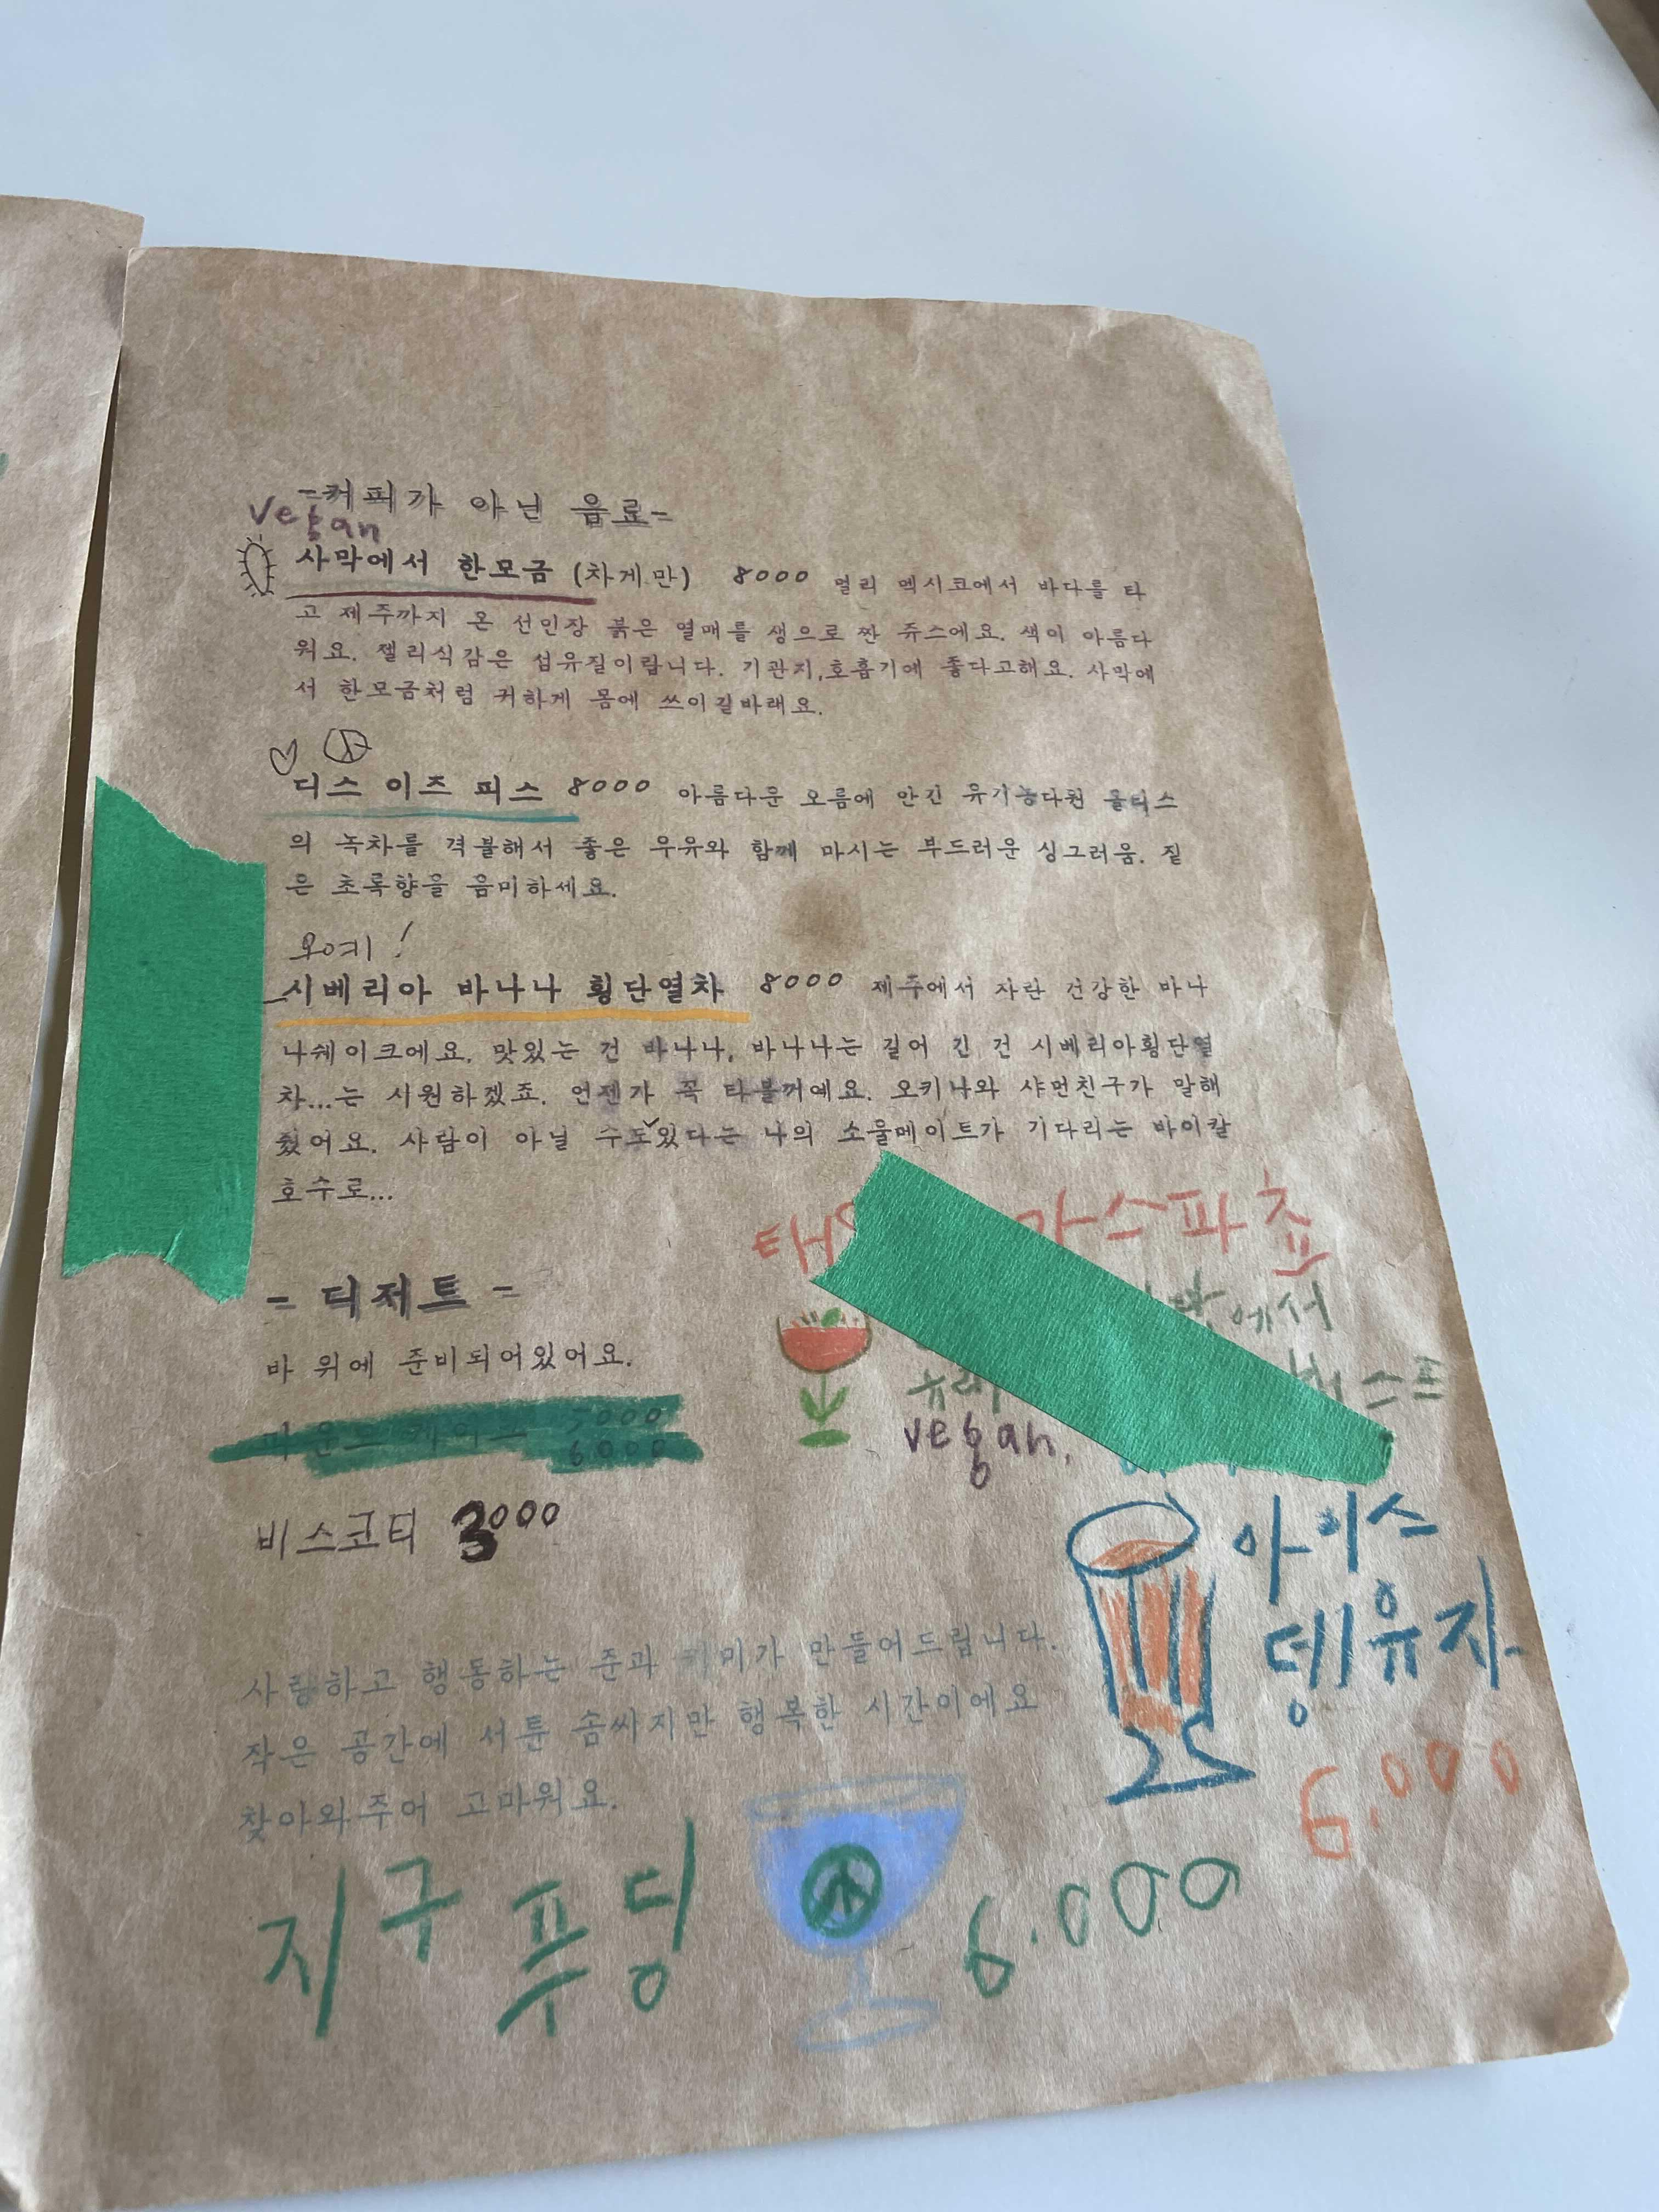 -커피가 아닌 음료-
vegan
사막에서 한모금 (차게만) 8000 멀리 멕시코에서 바다를 타
고 제주까지 온 선인장 붉은 열매를 생으로 짠 쥬스에요. 색이 아름다
워요. 젤리식감은 섬유질이랍니다. 기관지,호흡기에 좋다고해요. 사막에
서 한모금처럼 귀하게 몸에 쓰이길바래요.
디스 이즈 피스 8000 아름다운 오름에 안긴 유기농다원 올티스
의 녹차를 격불해서 좋은 우유와 함께 마시는 부드러운 싱그러움. 짙
은 초록향을 음미하세요.
오예!
시베리아 바나나 횡단열차 8000 제주에서 자란 건강한 바나
나쉐이크에요. 맛있는 건 바나나, 바나나는 길어 긴 건 시베리아횡단열
차...는 시원하겠죠. 언젠가 꼭 타볼꺼예요. 오키나와 샤먼친구가 말해
줬어요. 사람이 아닐 수도있다는 나의 소울메이트가 기다리는 바이칼
호수로...
가스파쵸
에서
vegan.
- 디저트 -
바 위에 준비되어있어요.
파운드 케이크 5000
6000
비스코티 3000
아이스
댕유자
6.000
사랑하고 행동하는 준과 키미가 만들어드립니다.
작은 공간에 서툰 솜씨지만 행복한 시간이에요
찾아와주어 고마워요.
지구 푸딩 6.000